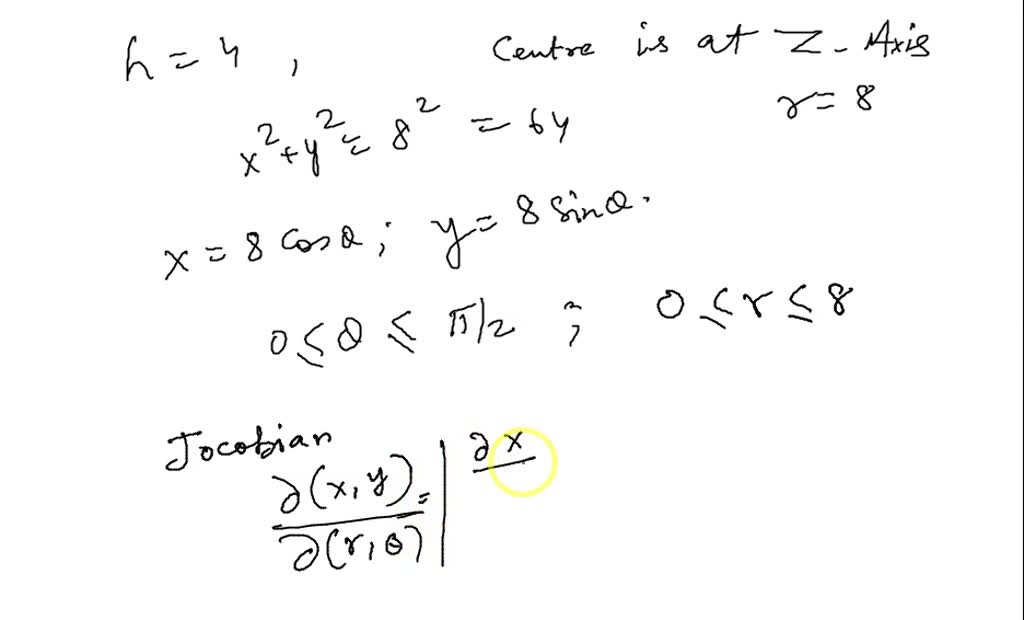 h = 4 , Centre is at Z-Axis
r = 8
x² + y² = 8² = 64
x = 8 cos θ ; y = 8 sin θ .
0 ≤ θ ≤ π/2 ; 0 ≤ r ≤ 8
Jocobian
∂(x, y) / ∂(r, θ) = | ∂x